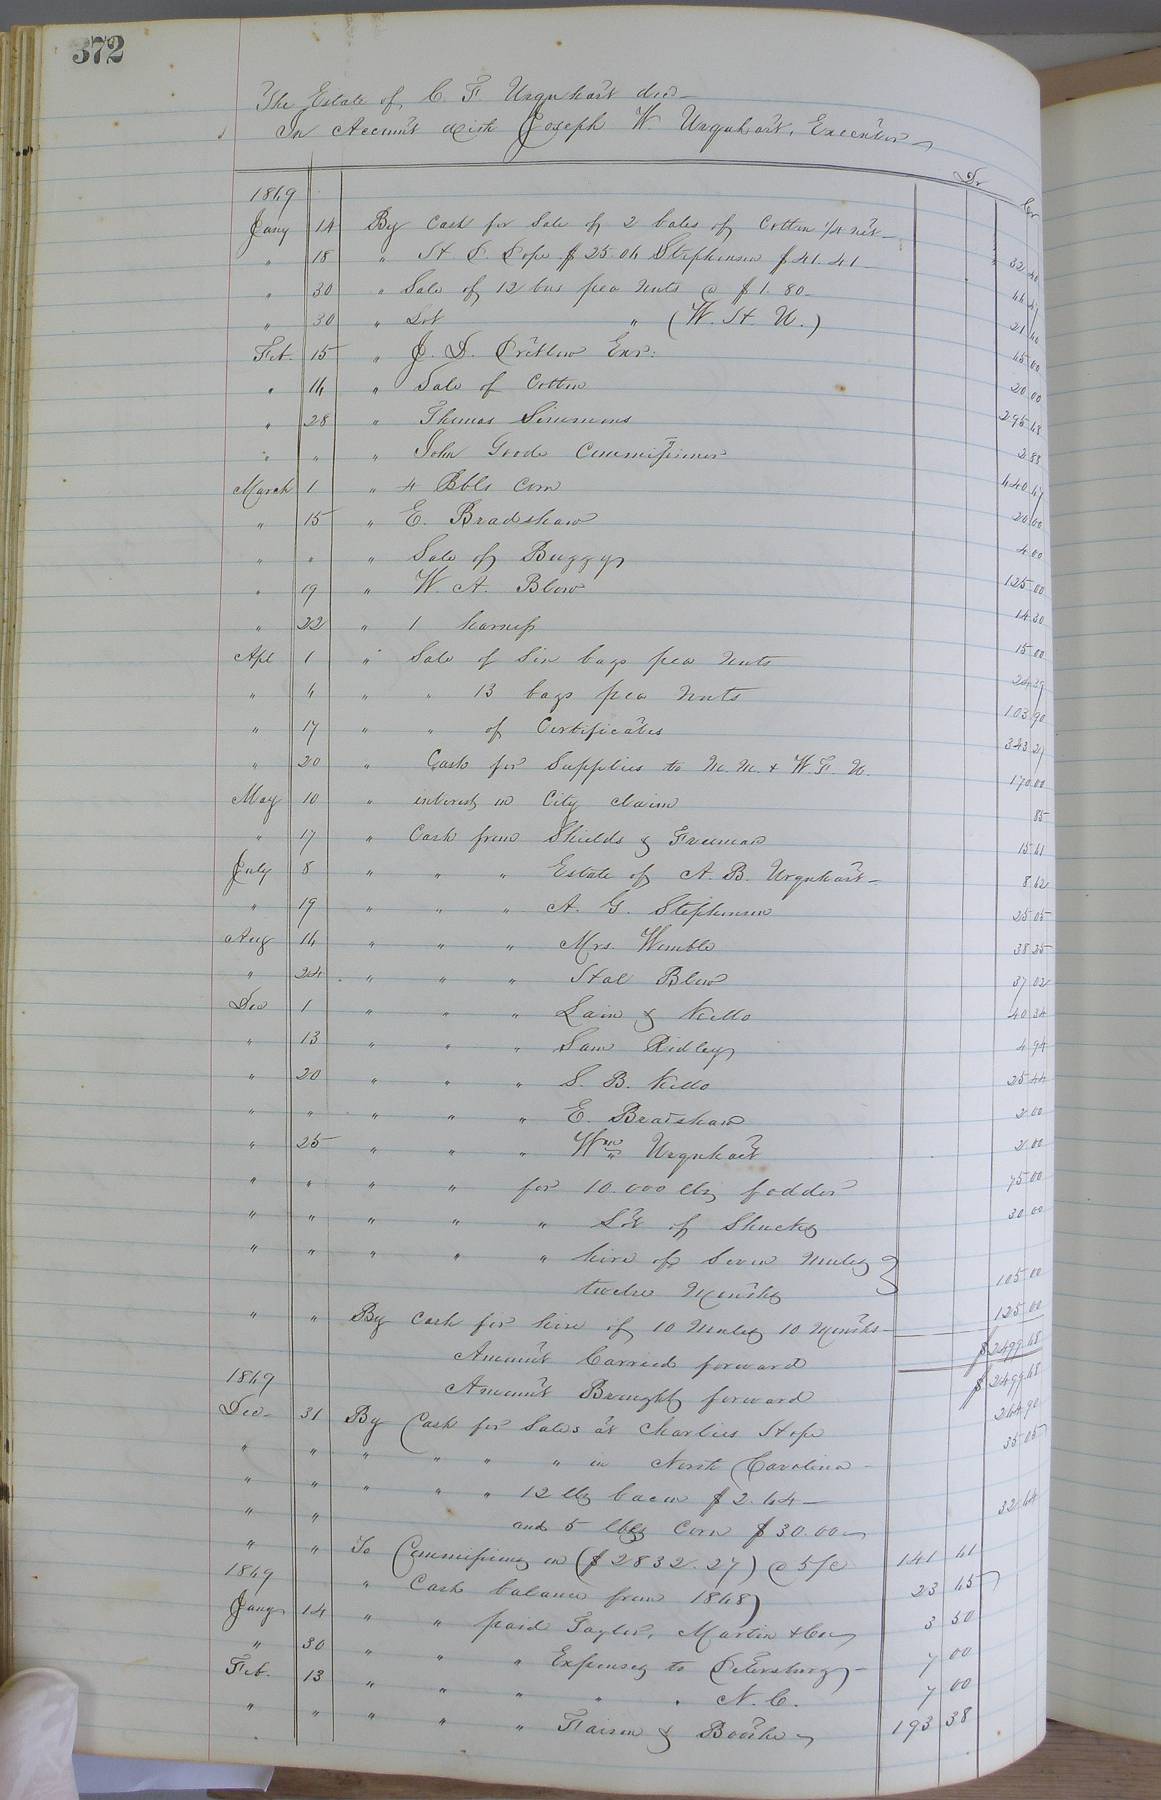 372
The Estate of C. F. Urquhart decd
In Account with Joseph W. Urquhart, Executor
Dr Cr
1869
Jany 14 By Cash for Sale of 2 bales of Cotton 1/4 net 32 40
" 18 " H S Pope $25.06 Stephenson $41.41 66 47
" 30 " Sale of 12 bus pea nuts @ $1.80 21 60
" 30 " Lot " (W. H. U.) 45 00
Feb. 15 " J. D. Pretlow Exr: 20 00
" 16 " Sale of Cotton 295 68
" 28 " Thomas Simmons 2 88
" " " John Goode Commissioner 440 47
March 1 " 4 Bbls Corn 20 00
" 15 " E. Bradshaw 4 00
" " " Sale of Buggy 125 00
" 19 " W. A. Blow 14 30
" 22 " 1 harness 15 00
Apl 1 " Sale of Six bags pea nuts 24 39
" 6 " " 13 bags pea nuts 103 90
" 17 " " of Certificates 343 29
" 20 " Cash for Supplies to M. M. & W. F. U. 170 00
May 10 " interest on City claim 85
" 17 " Cash from Shields & Freeman 15 61
July 8 " " " Estate of A. B. Urquhart 8 62
" 19 " " " A. G. Stephenson 25 05
Aug 16 " " " Mrs. Womble 38 25
" 24 " " " Hal Blow 37 02
Dec 1 " " " Lain & Kello 40 34
" 13 " " " Sam Ridley 4 94
" 20 " " " S. B. Kello 25 44
" " " " " E. Bradshaw 2 00
" 25 " " " Wm Urquhart 2 00
" " " " for 10.000 lbs fodder 75 00
" " " " " Lot of Shucks 30 00
" " " " " hire of Seven mules
twelve Months 105 00
" " By Cash for hire of 10 Mules 10 Months 125 00
Amount Carried forward $2499.68
1869 Amount Brought forward $2499.68
Dec 31 By Cash for Sales at Charlies Hope 264 90
" " " " " " in North Carolina 35 05
" " " " " 12 lbs bacon $2.64
" " and 5 bbls Corn $30.00 32 64
" " To Commissions on ($2832.27) @ 5/c 141 61
1869 " Cash balance from 1868 23 65
Jany 14 " " paid Taylor, Martin & Co 3 50
" 30 " " " Expenses to Petersburg 7 00
Feb. 13 " " " " " N. C. 7 00
" " " " " Faison & Boothe 193 38